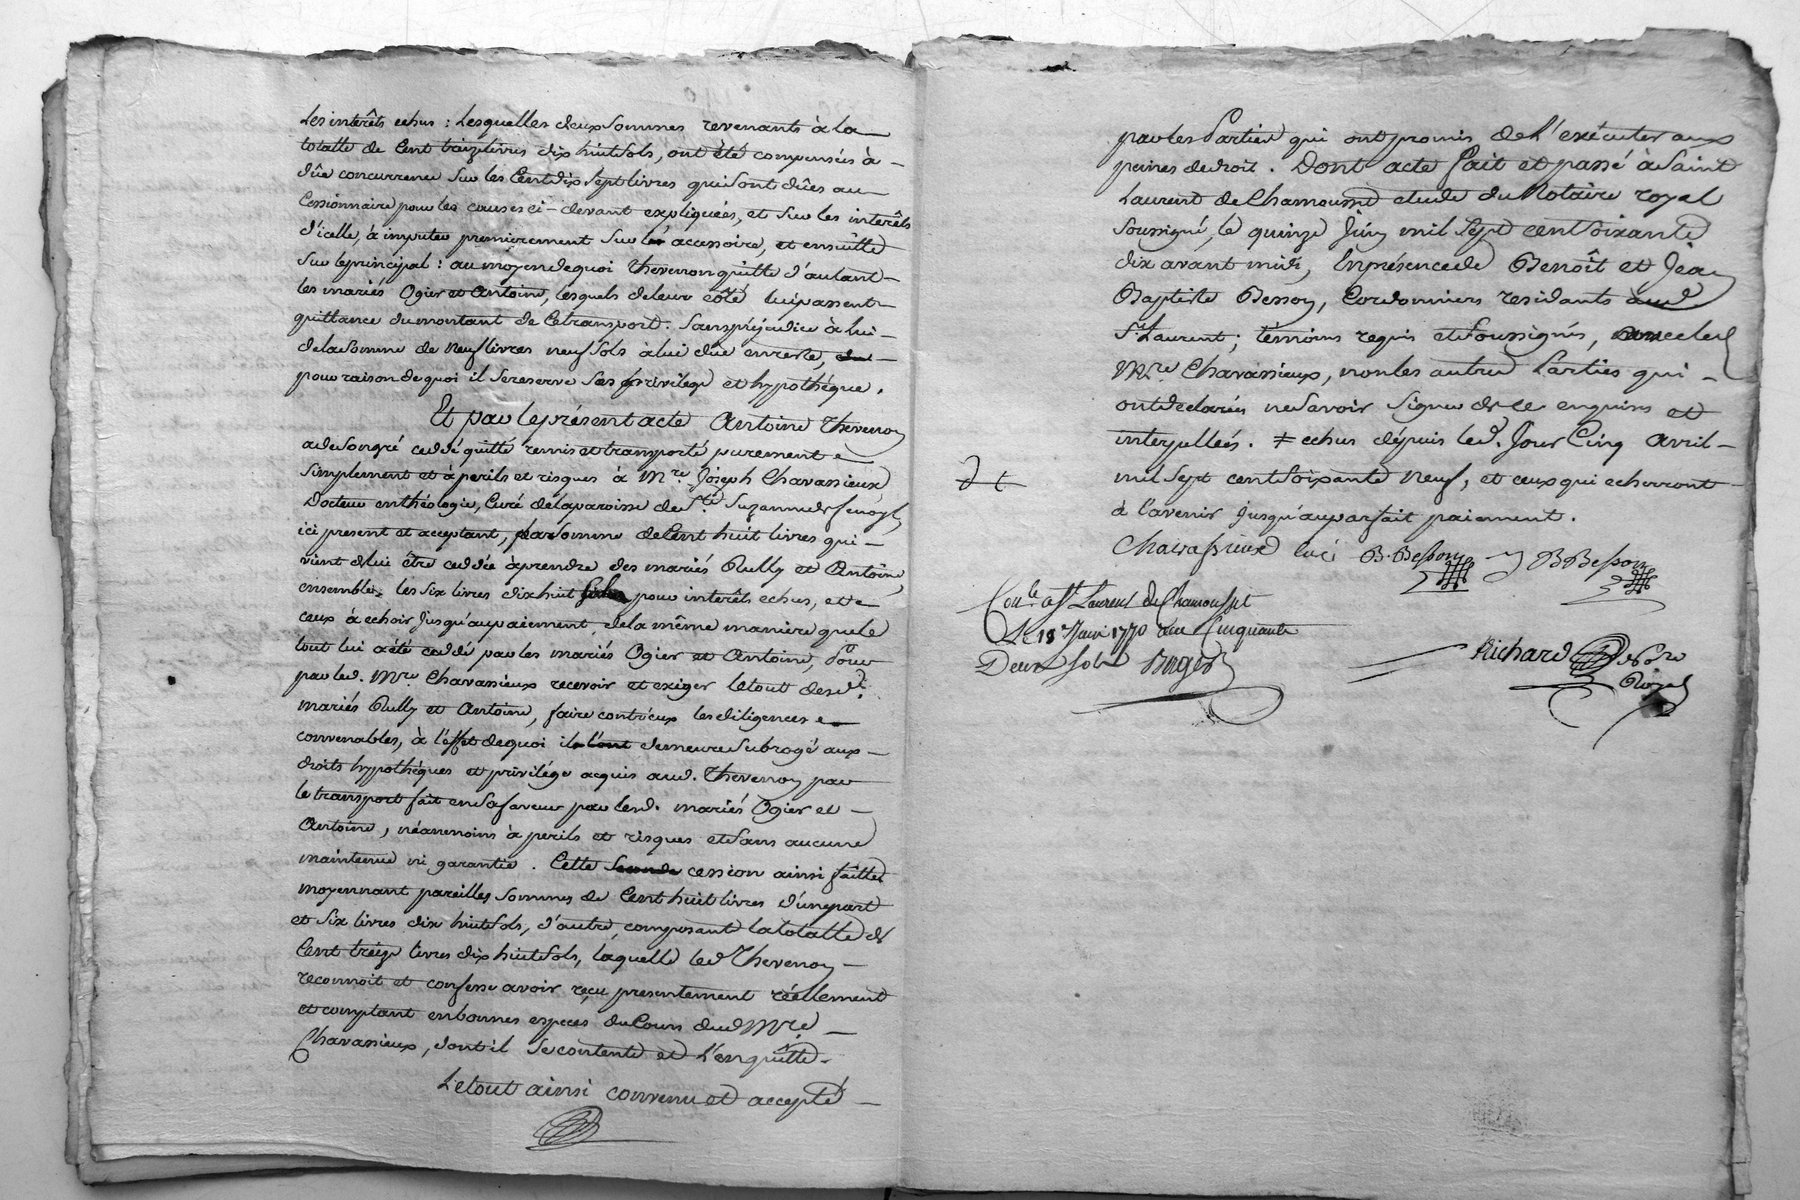 Les interêts echus : Lesquelles deux sommes revenants à la
totalle de Cent treize livres dix huit sols, ont été compensées à
dûe concurrence sur les Cent dix sept livres qui sont dûes au
Cessionnaire pour les causes ci-devant expliquées, et sur les interêts
d'icelle, à imputer premierement sur l' accessoire, et ensuitte
sur le principal : au moyen de quoi Thevenon quitte d'autant
les mariés Ogier et Antoine, lesquels de leur côté lui passent
quittance du montant de ce transport. Sans préjudice à lui
de la somme de neuf livres neuf sols à lui dûe en reste,
pour raison de quoi il se reserve ses privilege et hypothéque.
Et par le présent acte Antoine Thevenon
a de son gré cedé quitté remis et transporté purement
simplement et à perils et risques à Mre. Joseph Chavassieux
Docteur en théologie, Curé de la paroisse de Ste. Suzanne
ici present et acceptant, la somme de Cent huit livres qui
vient de lui être cedée à prendre des mariés Rully et Antoine,
ensemble les six livres dix huit sols pour interêts echus, et
ceux à echoir jusqu'au paiement, de la même maniere que le
tout lui a été cedé par les mariés Ogier et Antoine, Pour
par led. Mre Chavassieux recevoir et exiger le tout desdts.
mariés Rully et Antoine, faire contr'eux les diligences
convenables, à l'effet de quoi il demeure subrogé aux
droits hypothéques et privilége acquis aud. Thevenon par
le transport fait en sa faveur par lesd. mariés Ogier et
Antoine, néanmoins à perils et risques et sans aucune
maintenue ni garantie. Cette cession ainsi faitte
moyennant pareilles sommes de Cent huit livres d'une part
et six livres dix huit sols, d'autre, composant la totalle de
Cent treize livres dix huit sols, laquelle led Thevenon
reconnoit et confesse avoir reçu presentement réellement
et comptant en bonnes especes du Cours dud Mre
Chavassieux, dont il se contente et l'en quitte.
Le tout ainsi convenu et accepté
par les Parties qui ont promis de l'exécuter aux
peines de droit. Dont acte fait et passé à Saint
Laurent de Chamousset etude du Notaire royal
soussigné, le quinze Juin mil sept cent soixante
dix avant midi, En présence de Benoît et Jean
Baptiste Besson, Cordonniers residants aud.
St. Laurent, témoins requis et soussignés, avec led
Mre Chavassieux, non les autres Parties qui
ont declarées ne savoir signer de ce enquises et
interpellées. ≠ echus dépuis led. Jour Cinq Avril
mil sept cent soixante neuf, et ceux qui echerront
à l'avenir jusqu'au parfait paiement.
Chavassieux curé B. Besson J B Besson
Conlé a St Laurent de Chamousset
Le 18 Juin 1770 recu Cinquante
Deux sols Roger
Richard
Royal